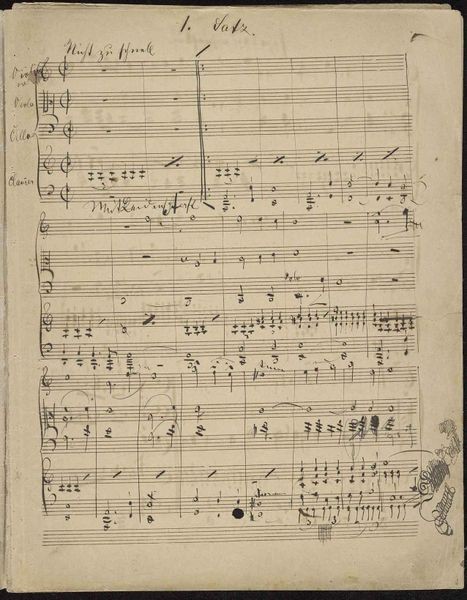 1. Satz.
Nicht zu schnell
Viola
Cello
Clavier
Mit Leidenschaft